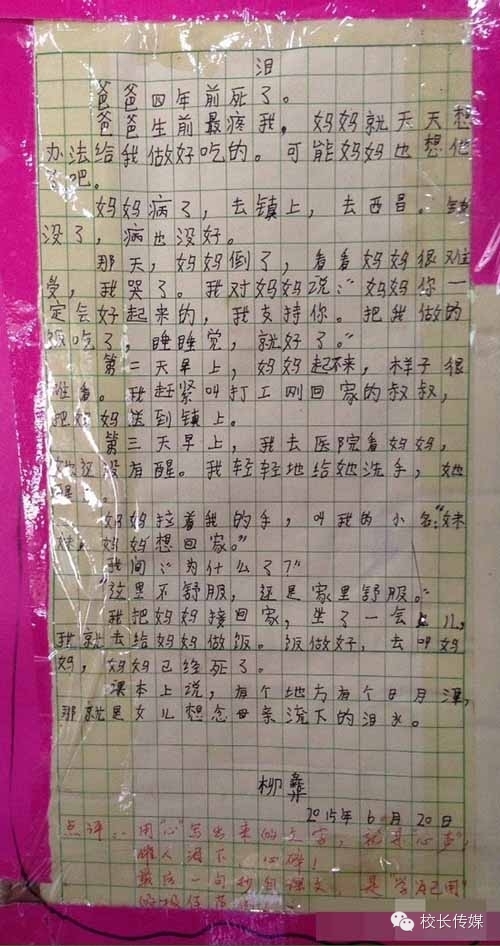 泪
爸爸四年前死了。
爸爸生前最疼我,妈妈就天天想
办法给我做好吃的。可能妈妈也想他
了吧。
妈妈病了,去镇上,去西昌。钱
没了,病也没好。
那天,妈妈倒了,看看妈妈很难
受,我哭了。我对妈妈说:“妈妈你一
定会好起来的,我支持你。把我做的
饭吃了,睡睡觉,就好了。”
第二天早上,妈妈起不来,样子很
难看。我赶紧叫打工刚回家的叔叔,
把妈妈送到镇上。
第三天早上,我去医院看妈妈,
她还没有醒。我轻轻地给她洗手,她
醒了。
妈妈拉着我的手,叫我的小名:“妹
妹,妈妈想回家。”
我问:“为什么了?”
“这里不舒服,还是家里舒服。”
我把妈妈接回家,坐了一会儿,
我就去给妈妈做饭。饭做好,去叫妈
妈,妈妈已经死了。
课本上说,有个地方有个日月潭,
那就是女儿想念母亲流下的泪水。
柳彝
2015年6月20日
点评:用“心”写出来的文字,就是“心声”,
催人泪下、心碎!
最后一句抄自课文,是“学为己用”
的
校长传媒